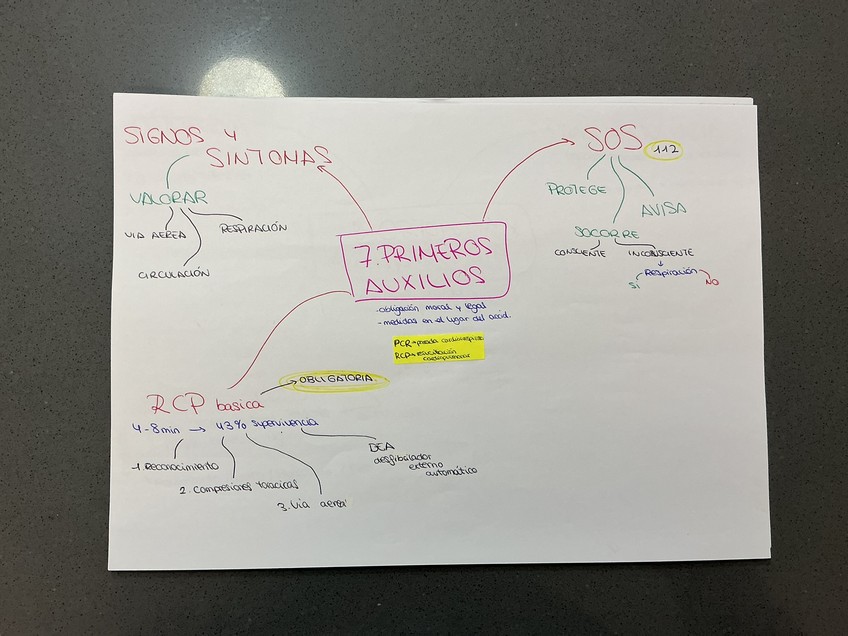 SIGNOS Y
SINTOMAS
VALORAR
VIA AEREA
RESPIRACIÓN
CIRCULACIÓN
SOS
112
PROTEGE
AVISA
SOCORRE
CONSCIENTE
INCONSCIENTE
Respiración
SI
NO
7. PRIMEROS
AUXILIOS
- obligación moral y legal
- medidas en el lugar del accid.
PCR → parada cardiorrespira
RCP → resucitación
cardiopulmonar
OBLIGATORIA
RCP basica
4-8min → 43% supervivencia
1. Reconocimiento
2. Compresiones toracicas
3. Via aerea
DEA
desfibrilador
externo
automático